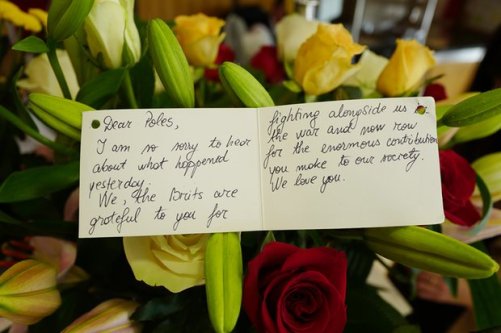 Dear Poles,
I am so sorry to hear
about what happened
yesterday.
We, the Brits are
grateful to you for
fighting alongside us in
the war and now row
for the enormous contribution
you make to our society.
We love you.